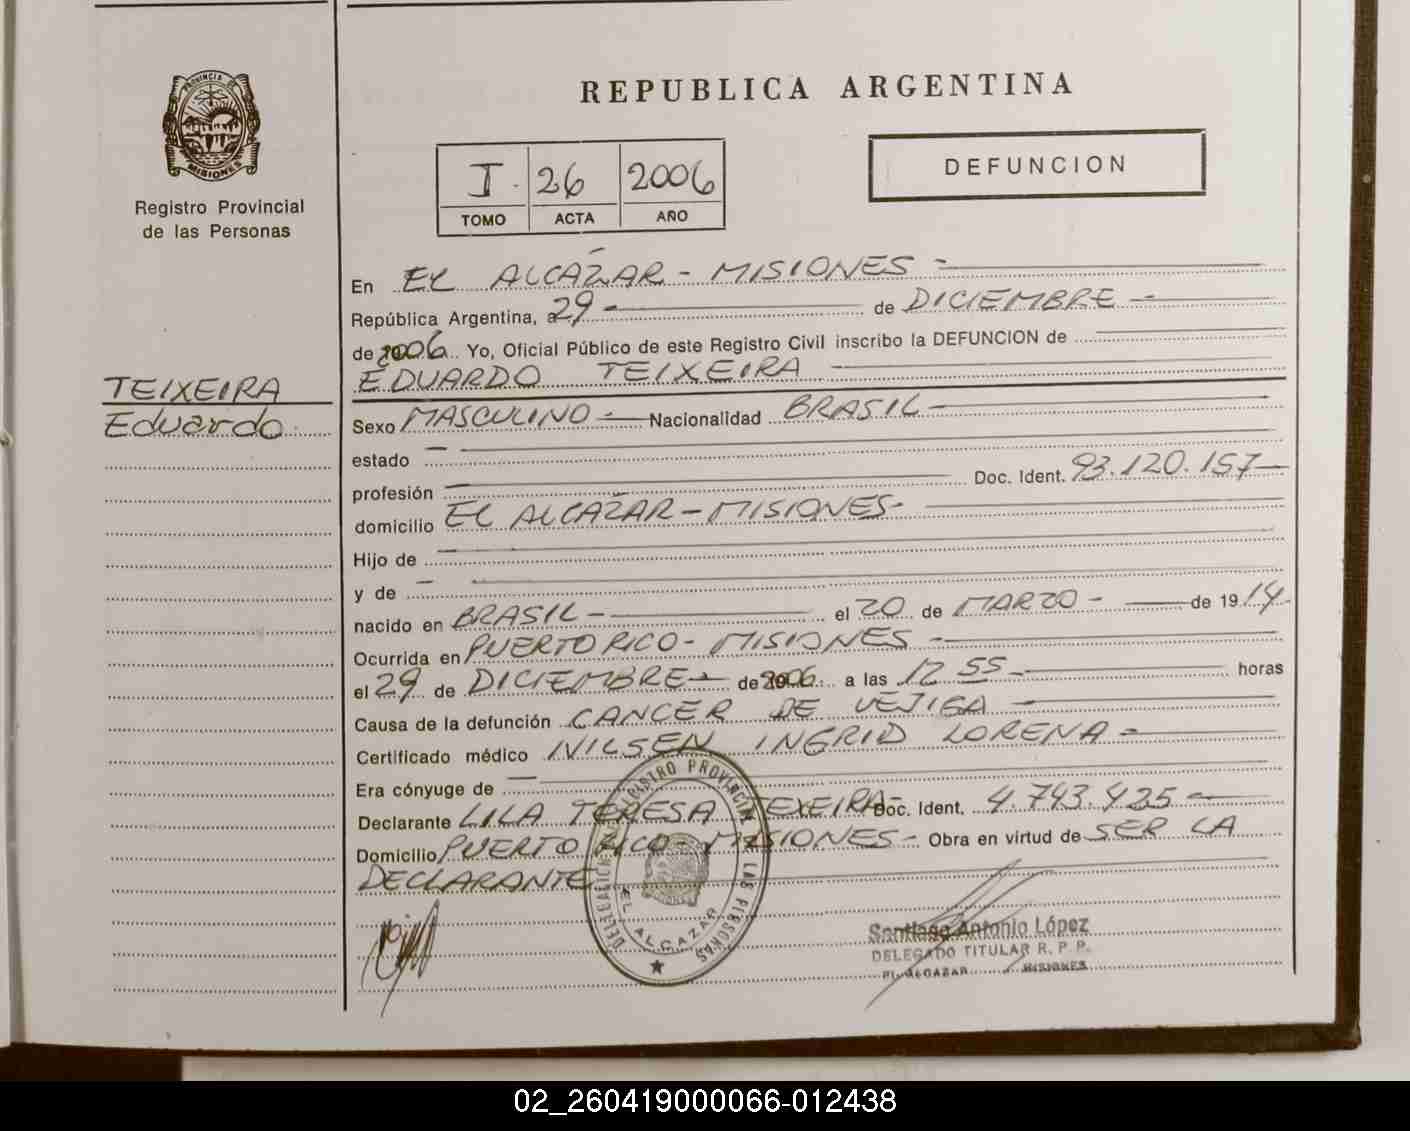 PROVINCIA DE
MISIONES
Registro Provincial
de las Personas
TEIXEIRA
Eduardo
REPUBLICA ARGENTINA
I 26 2006
TOMO ACTA AÑO
DEFUNCION
En EL ALCÁZAR - MISIONES -
República Argentina, a 29 - de DICIEMBRE -
de 2006 Yo, Oficial Público de este Registro Civil inscribo la DEFUNCION de
EDUARDO TEIXEIRA
Sexo MASCULINO - Nacionalidad BRASIL -
estado -
profesión Doc. Ident. 93.120.157 -
domicilio EL ALCAZAR - MISIONES -
Hijo de -
y de -
nacido en BRASIL - el 20 de MARZO - de 1914 -
Ocurrida en PUERTO RICO - MISIONES -
el 29 de DICIEMBRE - de 2006 a las 12 55 - horas
Causa de la defunción CANCER DE VEJIGA -
Certificado médico NILSEN INGRID LORENA -
Era cónyuge de -
Declarante LILA TERESA TEXEIRA - Doc. Ident. 4.743.425 -
Domicilio PUERTO RICO - MISIONES - Obra en virtud de SER LA
DECLARANTE
REGISTRO PROVINCIAL DE LAS PERSONAS
DELEGACION
EL ALCAZAR
Santiago Antonio López
DELEGADO TITULAR R. P. P.
EL ALCAZAR MISIONES
02_260419000066-012438